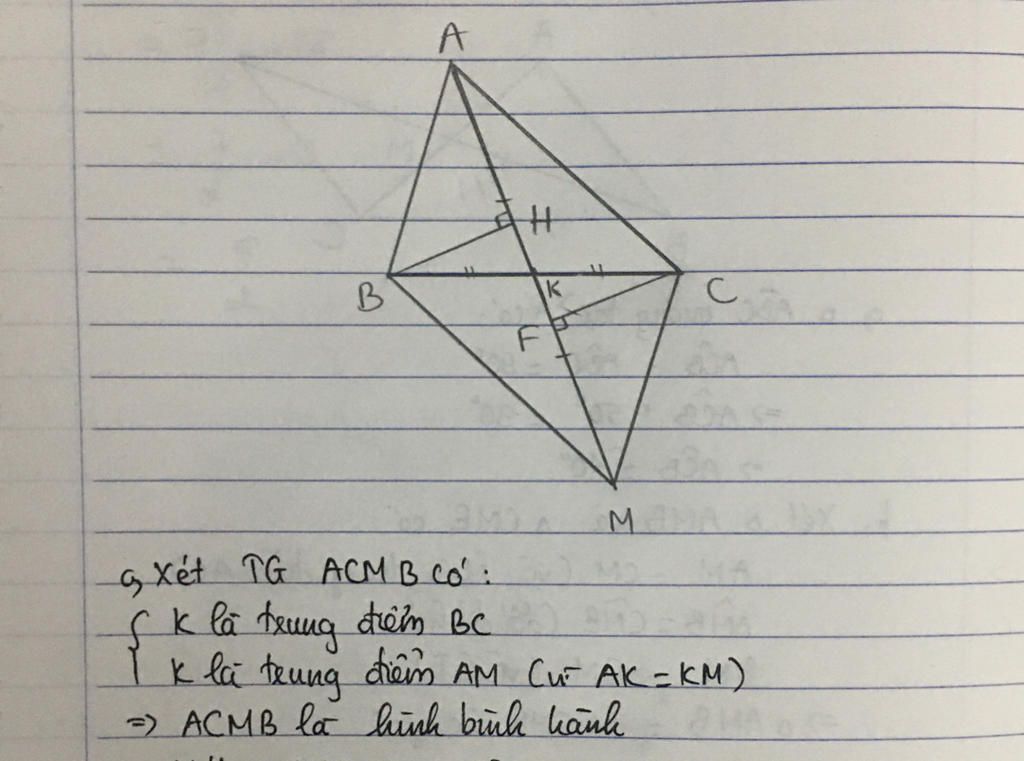 A
H
B
K
C
F
M
a, Xét TG ACMB có:
K là trung điểm BC
K là trung điểm AM (vì AK = KM)
=> ACMB là hình bình hành